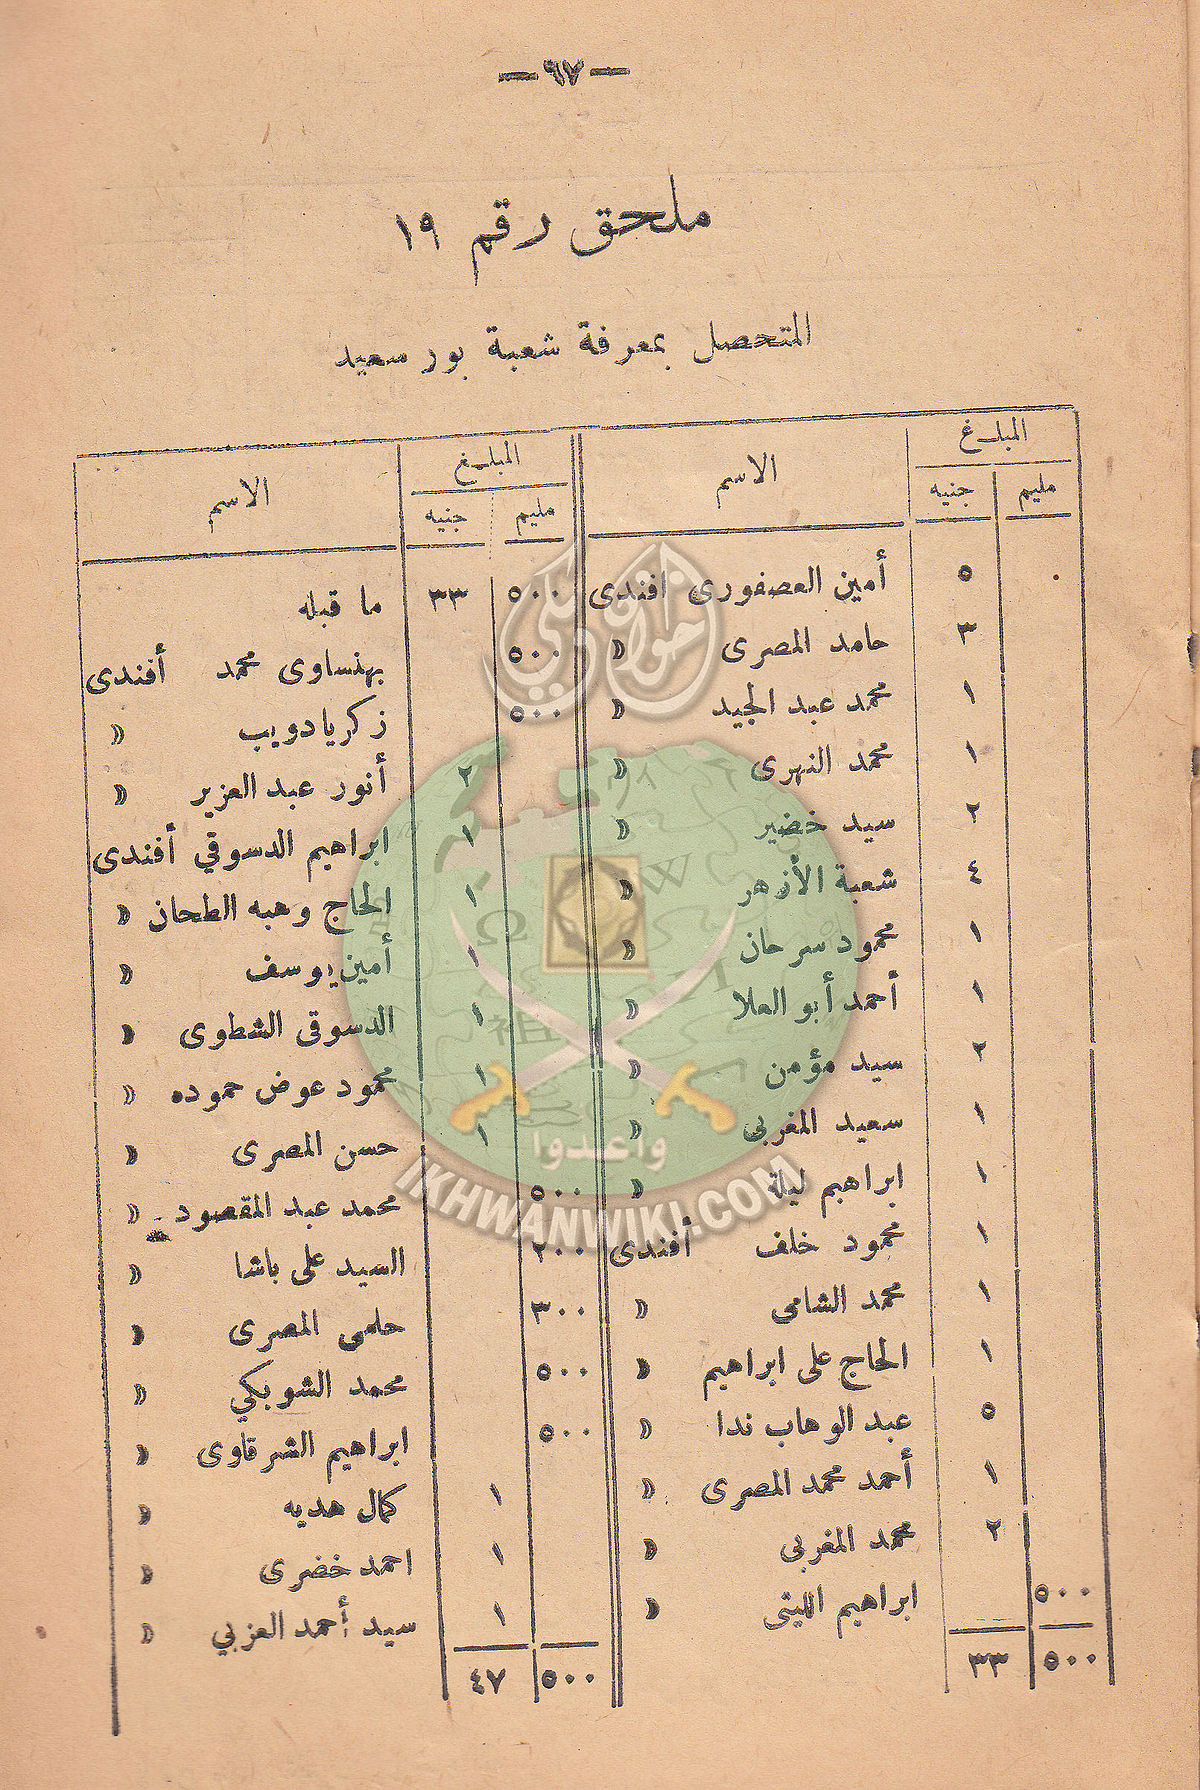 — ٩٧ —
ملحق رقم ١٩
المتحصل بمعرفة شعبة بور سعيد
المبلغ الاسم
مليم جنيه
٥ أمين العصفورى افندى
٣ حامد المصرى »
١ محمد عبد المجيد »
١ محمد النهرى »
٢ سيد خضير »
٤ شعبة الأزهر »
١ محمود سرحان »
١ أحمد أبو العلا »
٢ سيد مؤمن »
١ سعيد المغربى »
١ ابراهيم ليلة »
١ محمود خلف أفندى
١ محمد الشامى »
١ الحاج على ابراهيم »
٥ عبد الوهاب ندا »
١ أحمد محمد المصرى »
٢ محمد المغربى »
٥٠٠ ابراهيم الليثى »
٥٠٠ ٣٣
المبلغ الاسم
مليم جنيه
٥٠٠ ٣٣ ما قبله
٥٠٠ بهنساوى محمد أفندى
٥٠٠ زكريا دويب »
٢ أنور عبد العزيز »
١ ابراهيم الدسوقي أفندى
١ الحاج وهبه الطحان »
١ أمين يوسف »
١ الدسوقى الشطوى »
١ محمود عوض حموده »
١ حسن المصرى »
٥٠٠ محمد عبد المقصود »
٢٠٠ السيد على باشا »
٣٠٠ حلمى المصرى »
٥٠٠ محمد الشوبكي »
٥٠٠ ابراهيم الشرقاوى »
١ كمال هديه »
١ احمد خضرى »
١ سيد أحمد العزبي »
٥٠٠ ٤٧
إخوان ويكي
وأعدوا
IKHWANWIKI.COM